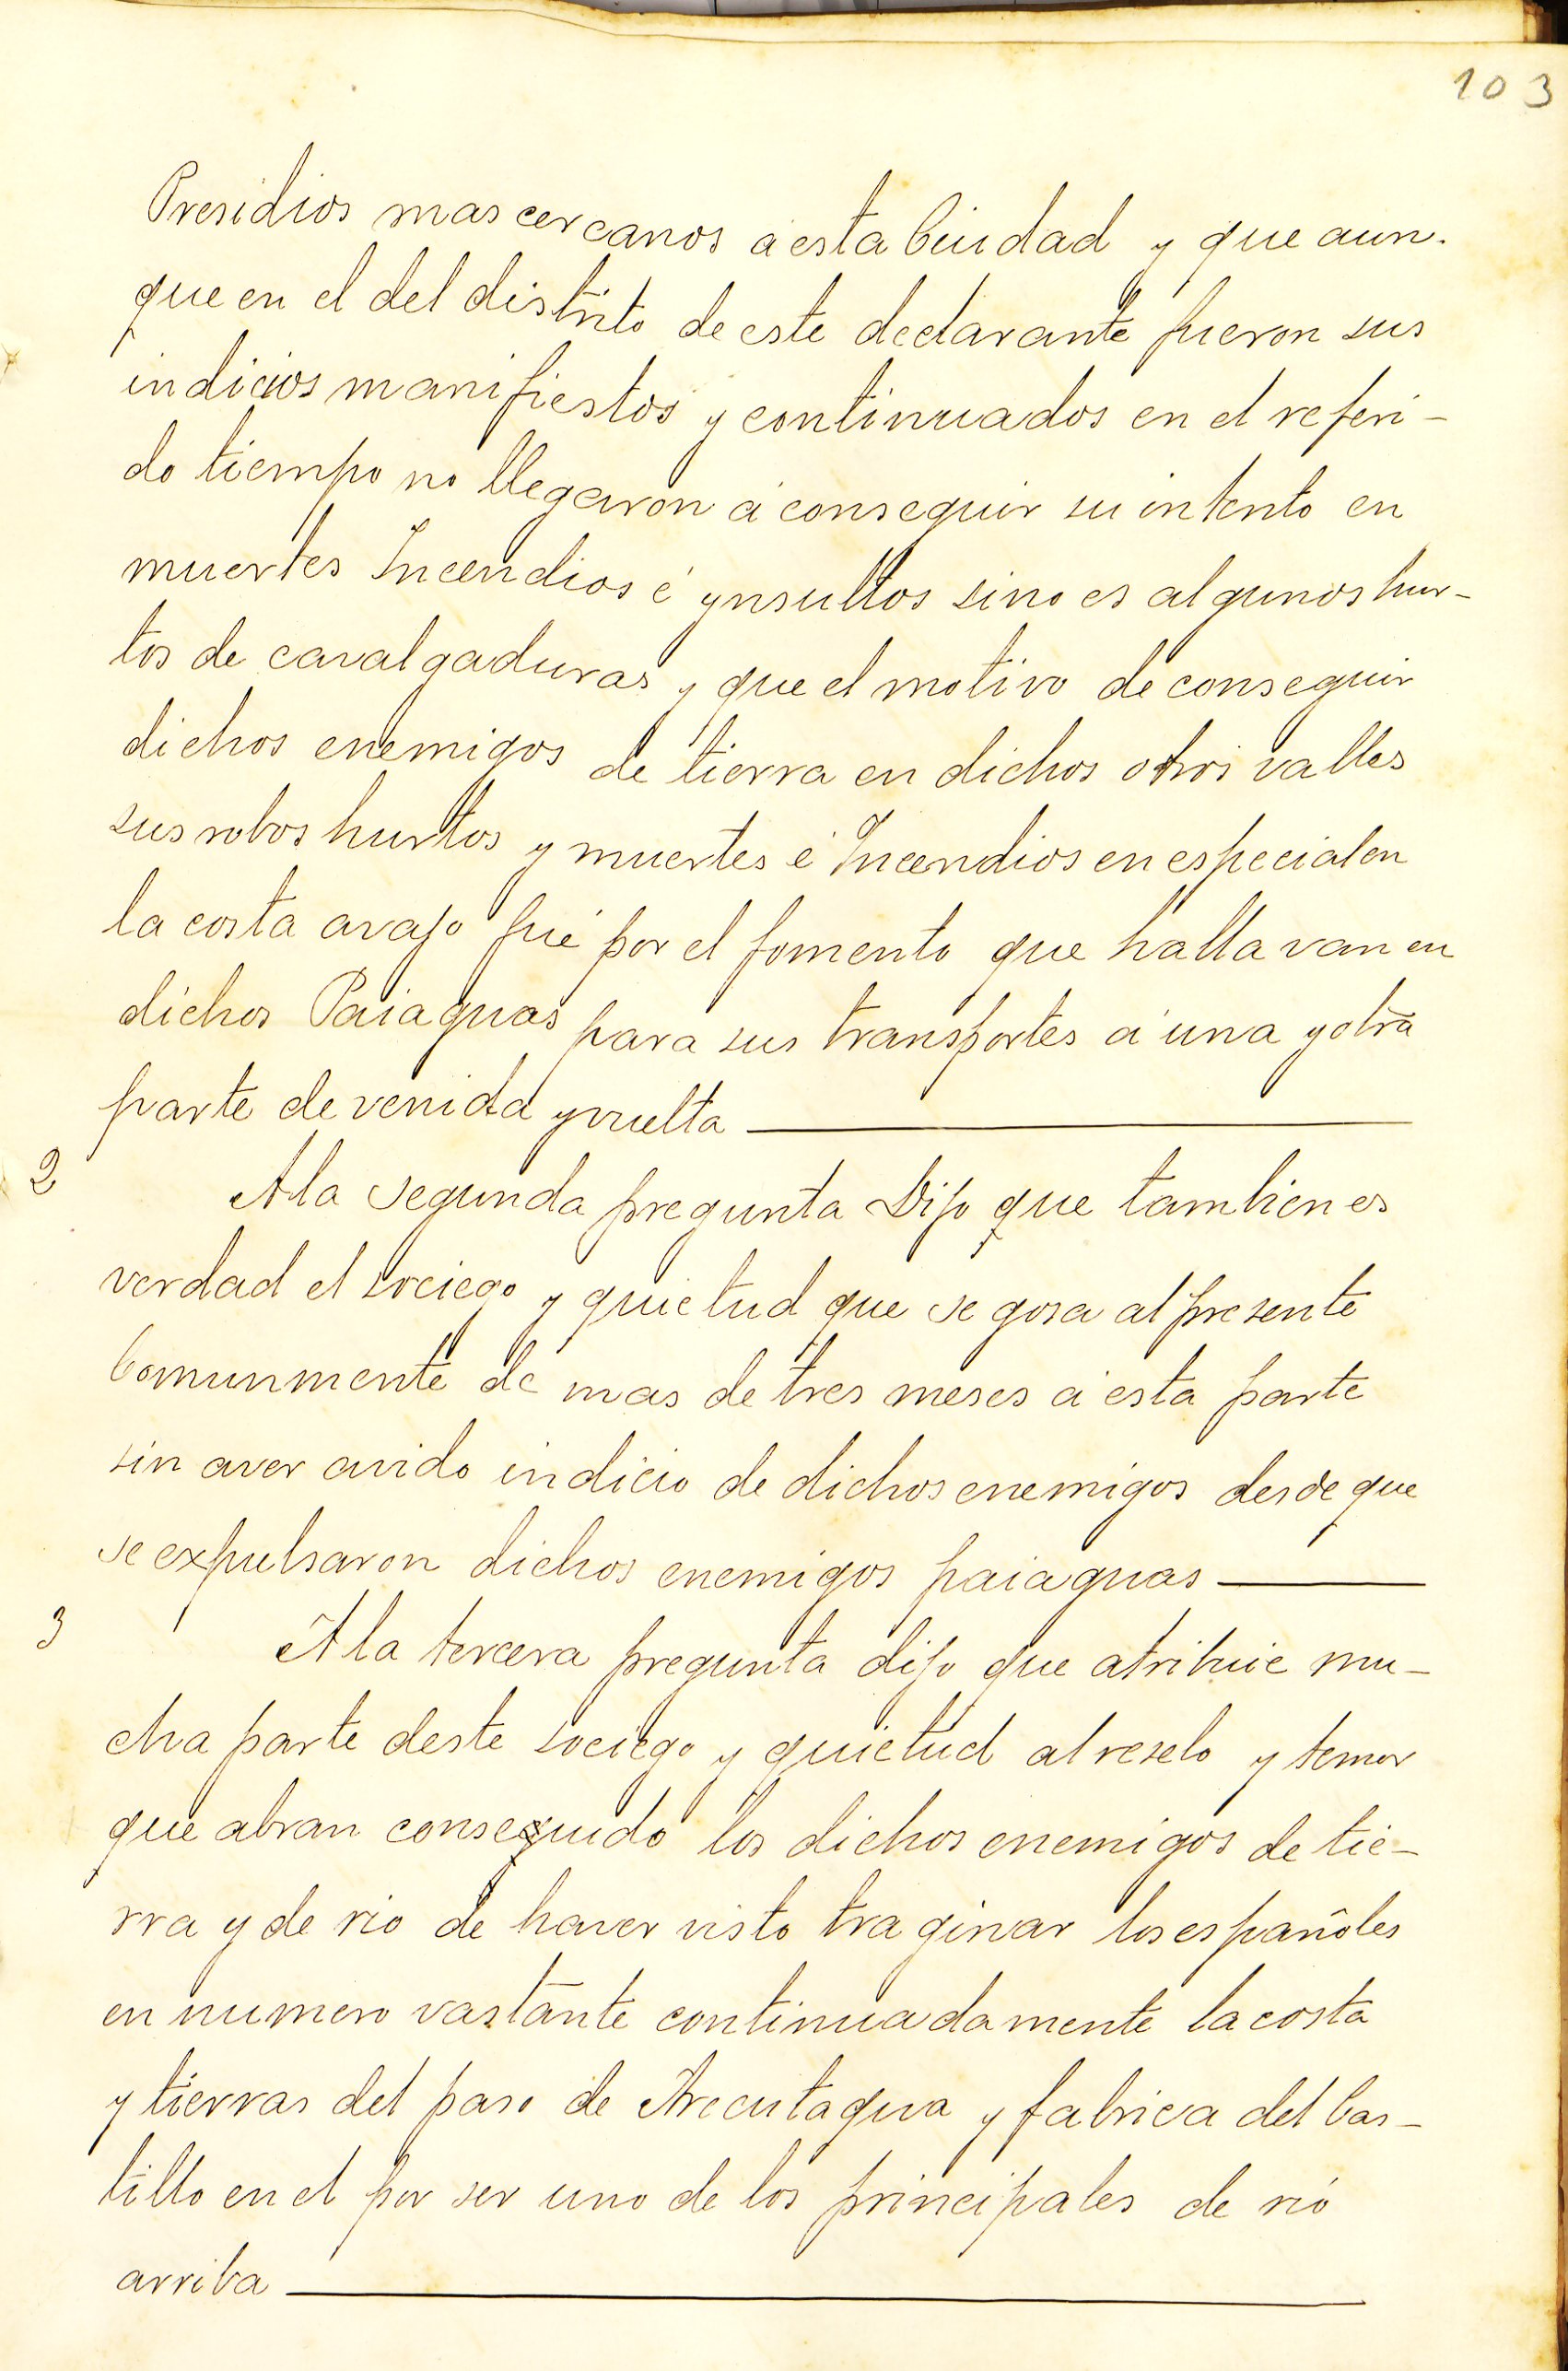 103
Presidios mas cercanos á esta Ciudad y que aun-
que en el del distrito de este declarante fueron sus
indicios manifiestos y continuados en el referi-
do tiempo no llegaron á conseguir su intento en
muertes Incendios é ynsultos sino es algunos hur-
tos de cavalgaduras y que el motivo de conseguir
dichos enemigos de tierra en dichos otros valles
sus robos hurtos y muertes é Incendios en especial en
la costa avajo fué por el fomento que hallavan en
dichos Paiaguas para sus transportes á una y otra
parte de venida y vuelta
2 A la segunda pregunta Dijo que tambien es
verdad el sociego y quietud que se gosa al presente
Comunmente de mas de tres meses á esta parte
sin aver avido indicio de dichos enemigos desde que
se expulsaron dichos enemigos paiaguas
3 A la tercera pregunta dijo que atribuie mu-
cha parte deste sociego y quietud al reselo y temor
que abran conseguido los dichos enemigos de tie-
rra y de rio de haver visto traginar los españoles
en numero vastante continuadamente la costa
y tierras del paso de Arecutagua y fabrica del Cas-
tillo en el por ser uno de los principales de rió
arriba